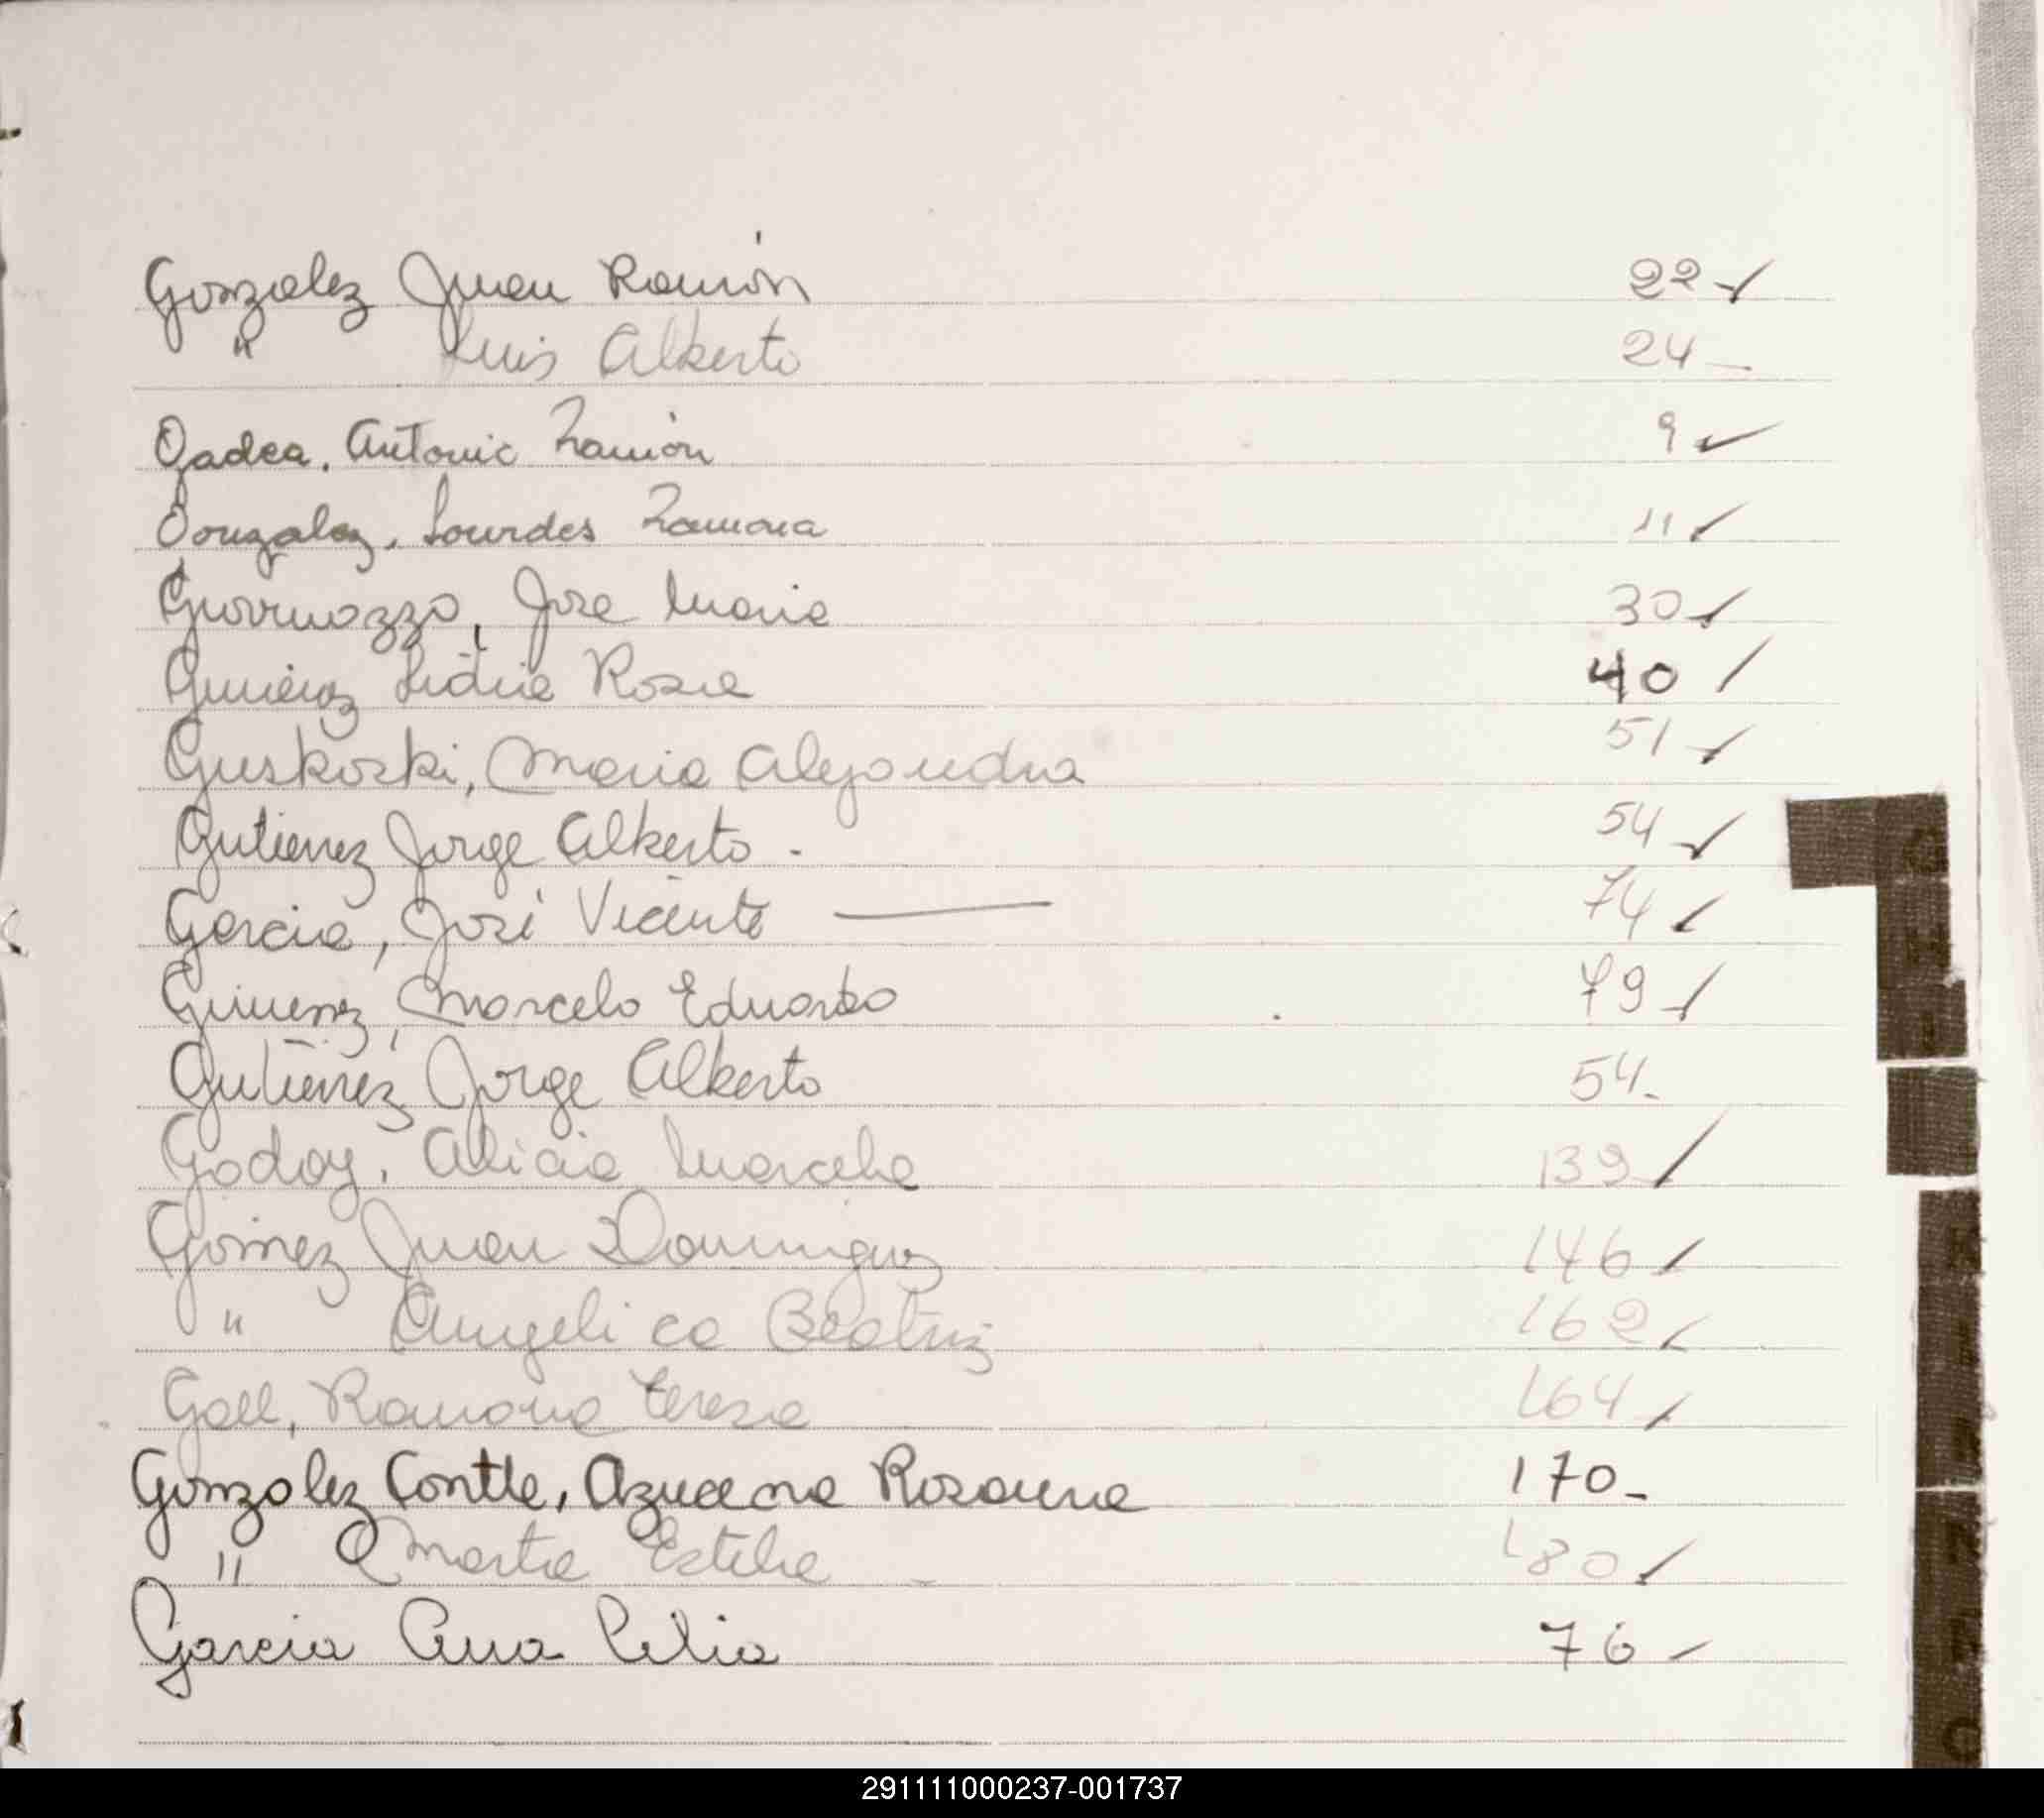 Gonzalez Juan Ramón 22
" Luis Alberto 24
Gadea. Antonio Ramón 9
Gonzalez, Lourdes Ramona 11
Jose Maria 30
Gimenez Lidia Rosa 40
Guskoski, Maria Alejandra 51
Gutierrez Jorge Alberto. 54
Garcia, José Vicente — 74
Gimenez, Marcelo Eduardo 79
Gutierrez Jorge Alberto 54
Godoy, Alicia Marcela 139
Gómez Juan Dominguez 146
" Angelica Beatriz 162
Goll, Ramona Teresa 164
Gonzalez Contte, Azucena Rosanna 170
" Marta Estela 180
Garcia Ana Celia 76
291111000237-001737